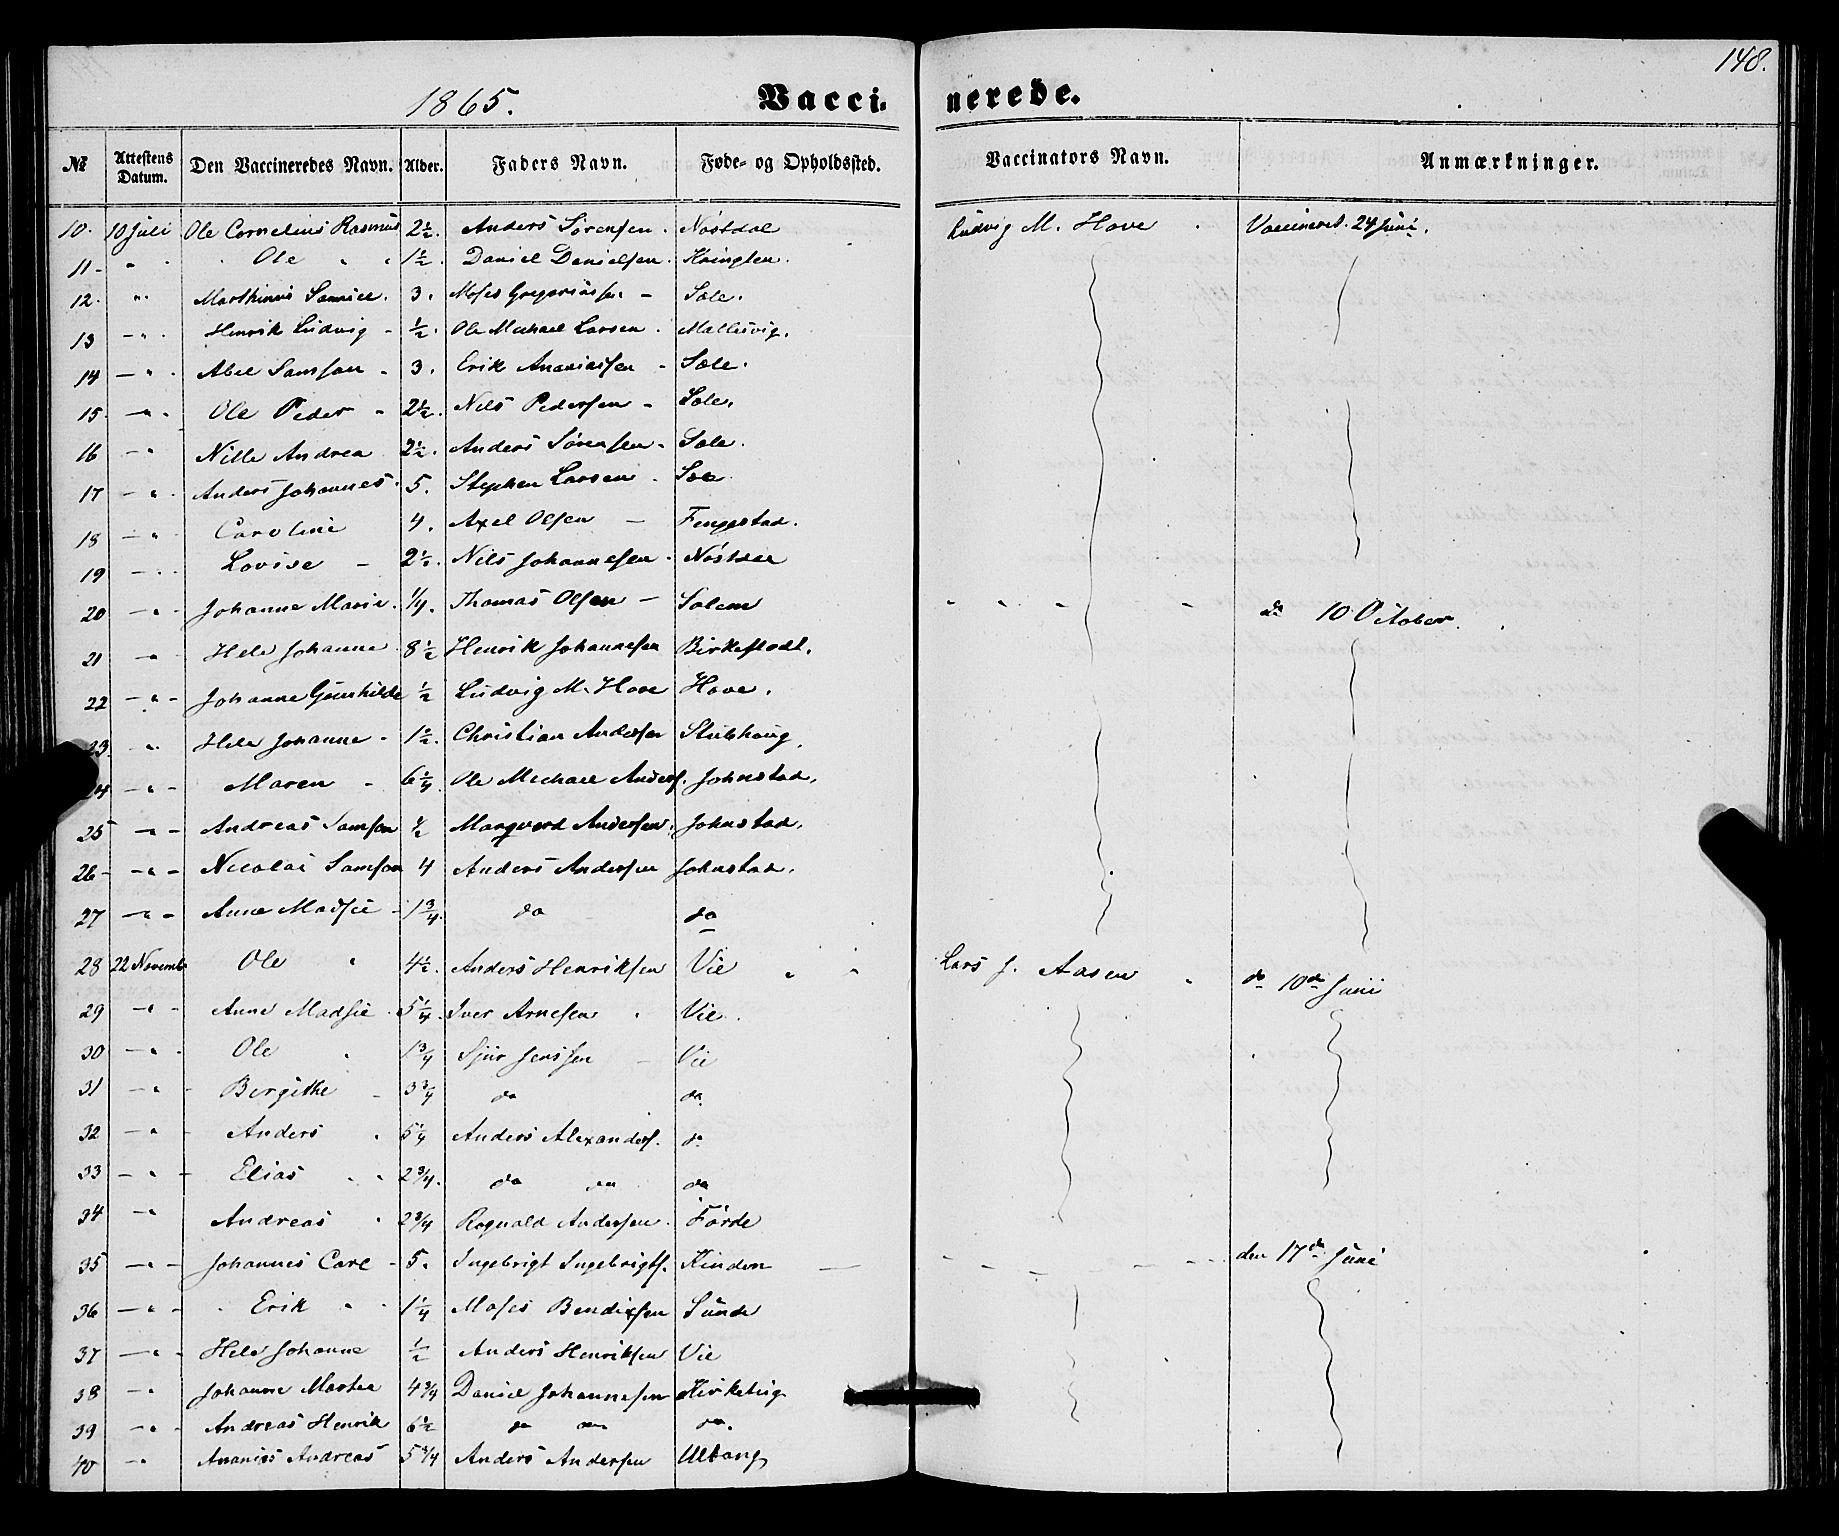 148.
1865. Vacci- nerede.
№ Attestens Datum. Den Vaccineredes Navn. Alder. Faders Navn. Føde- og Opholdssted. Vaccinators Navn. Anmærkninger.
10. 10 Juli Ole Cornelius Rasmus 2½. Anders Sørensen. Nøstdal Ludvig M. Hove Vaccineret. 24 Juni.
11 - " Ole 1½. Daniel Danielsen.
12. " Marthinus Samuel. 3. Moses Gregoriussen - Sæle.
13 - " Henrik Ludvig - ½. Ole Michael Larsen.
14 - " Abel Samson - 3. Erik Ananiassen - Sæle.
15. - " Ole Peder - 2½. Nils Pedersen - Sæle.
16 - " Nille Andrea 2½. Anders Sørensen - Sæle.
17 - " Anders Johannes. 5. Stephen Larsen.
18 - " Caroline 4. Axel Olsen -
19 - " Lovise - 2½. Nils Johannesen. Nøstdal
20 - " Johanne Marie. ¼. Thomas Olsen - Solem do 10 October.
21 - " Hele Johanne 8½ Henrik Johannesen
22 - " - Johanne Gunhilde ½ Ludvig M. Hove Hove.
23. " Hele Johanne - 1½. Christian Andersen Stubhoug.
24 - " - Maren - Ole Michael Anders. Johnstad.
25 - " - Andreas Samson ½ Marqvard Andersen. Johnstad.
26 - - " - Nicolai Samson 4 Anders Andersen Johnstad.
27 - " - Anne Madsie - 1¾. do do
28 22 Novemb. Ole " 4½. Anders Henriksen Vie " " Lars J. Aasen " do 10de Juni
29 - " Anne Madsie. 5¼. Iver Arnesen " Vie.
30 - " Ole " 1¾ Sjur Jenssen - Vie
31 - " - Bergithe - 3¾ do do
32 - " Anders 5¼ Anders Alexanders. do
33 - " - Elias 2¾. do do do
34 - " Andreas " 2¾ Rognald Andersen. Førde
35 - " - Johannes Carl - 5. Ingebrigt Ingebrigts. Hinden den 17de Juni
36 - " - Erik 1¼ Moses Bendixsen Sunde
37 - " - Hele Johanne ½ Anders Henriksen Vie
38 - " Johanne Martea 4¾ Daniel Johannesen
39 - " - Andreas Henrik 6½ do do do.
40 - " Ananias Andreas 5¾ Anders Andersen